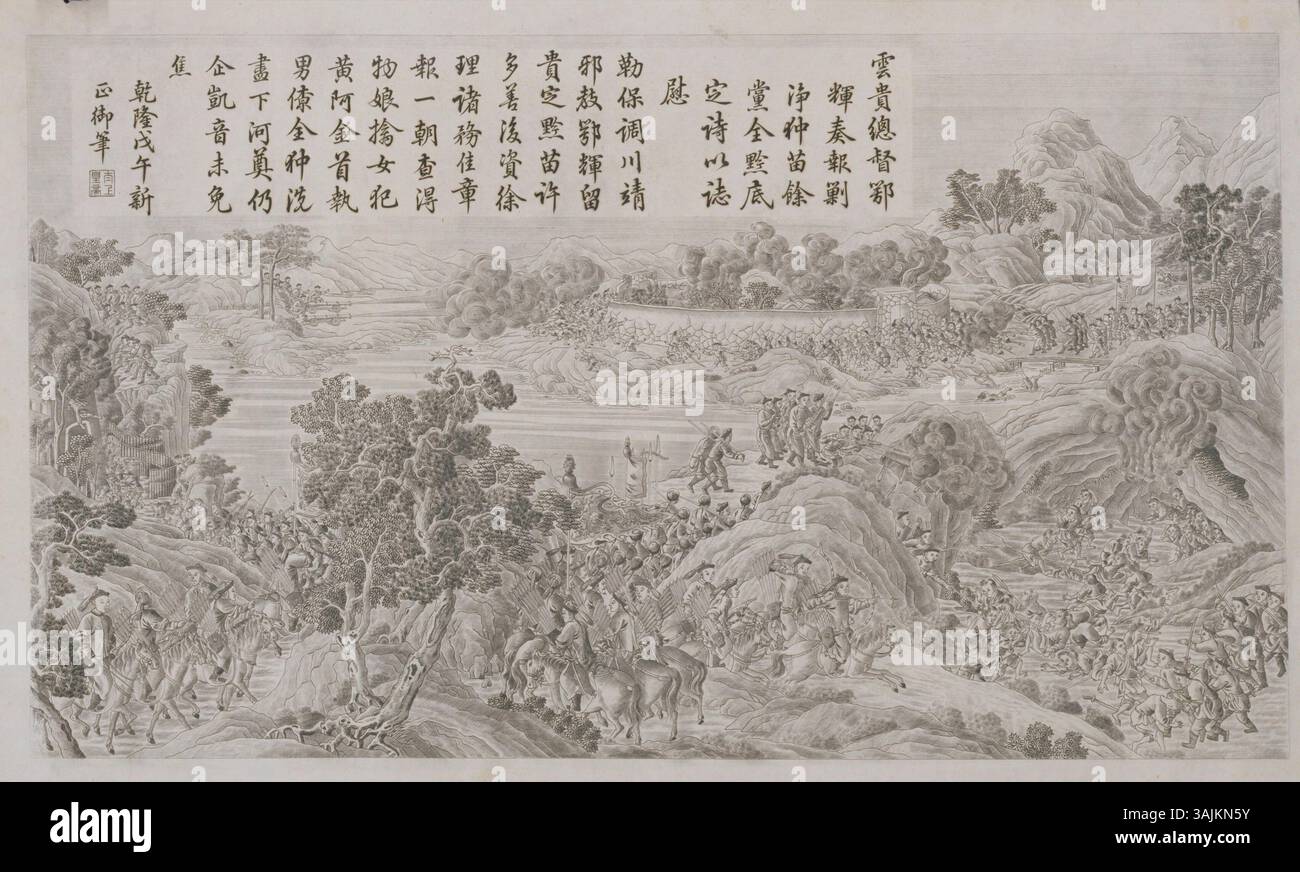 雲貴總督鄂
輝奏報剿
淨狆苗餘
黨全黔底
定詩以誌
慰
勒保調川靖
邪教鄂輝留
貴定黔苗許
多善後資徐
理諸務佳章
報一朝查得
物娘擒女犯
黃阿金首執
男傢全狆洗
盡下河奠仍
企凱音未免
焦
乾隆戊午新
正御筆
alamy
Image ID: 3AJKN5Y
www.alamy.com